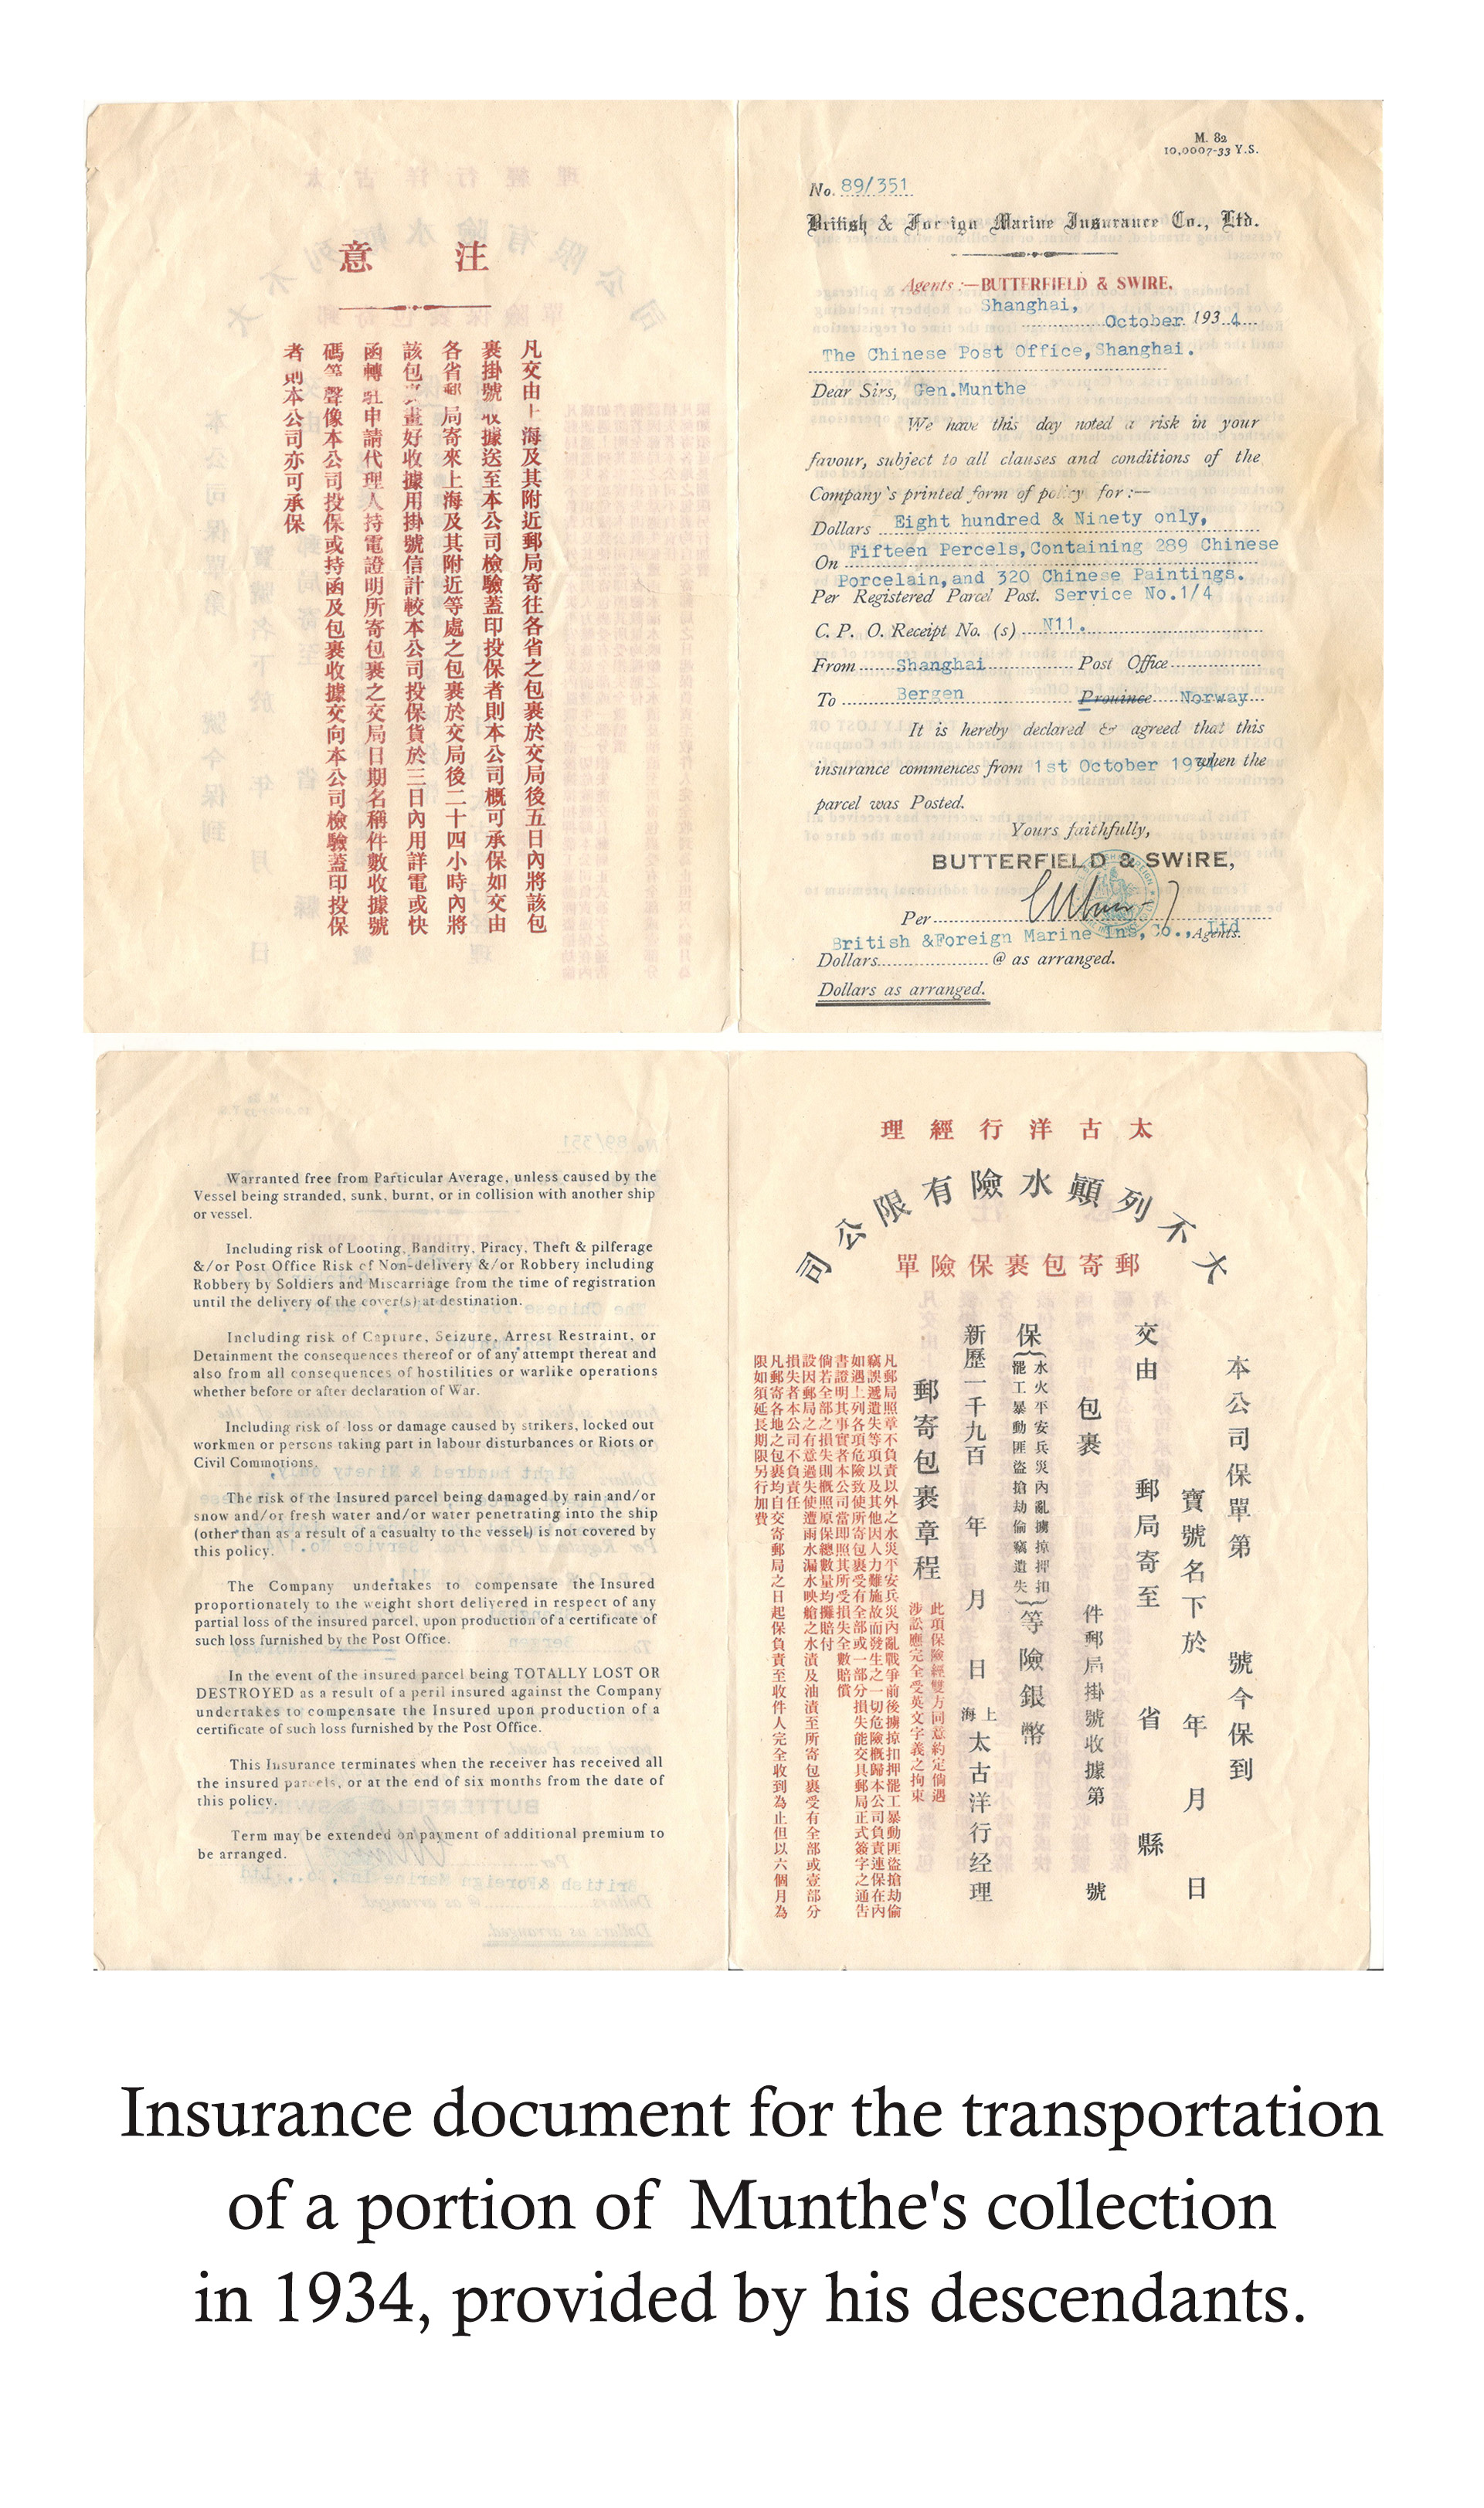 注意
凡交由上海及其附近郵局寄往各省之包裹於交局後五日內將該包
裹掛號收據送至本公司檢驗蓋印投保者則本公司概可承保如交由
各省郵局寄來上海及其附近等處之包裹於交局後二十四小時內將
該包裹畫好收據用掛號信計較本公司投保貨於三日內用詳電或快
函轉駐申請代理人持電證明所寄包裹之交局日期名稱件數收據號
碼等聲像本公司投保或持函及包裹收據交向本公司檢驗蓋印投保
者則本公司亦可承保
M. 82
10,0007-33 Y.S.
No. 89/351
British & Foreign Marine Insurance Co., Ltd.
Agents:—BUTTERFIELD & SWIRE,
Shanghai,
October 193 4
The Chinese Post Office, Shanghai.
Dear Sirs, Gen.Munthe
We have this day noted a risk in your
favour, subject to all clauses and conditions of the
Company's printed form of policy for:—
Dollars Eight hundred & Ninety only,
On Fifteen Percels, Containing 289 Chinese
Porcelain, and 320 Chinese Paintings.
Per Registered Parcel Post. Service No.1/4
C. P. O. Receipt No. (s) N11.
From Shanghai Post Office
To Bergen Province Norway
It is hereby declared & agreed that this
insurance commences from 1st October 1934 when the
parcel was Posted.
Yours faithfully,
BUTTERFIELD & SWIRE,
Per
British & Foreign Marine Ins, Co., Ltd Agents.
Dollars @ as arranged.
Dollars as arranged.
Warranted free from Particular Average, unless caused by the
Vessel being stranded, sunk, burnt, or in collision with another ship
or vessel.
Including risk of Looting, Banditry, Piracy, Theft & pilferage
&/or Post Office Risk of Non-delivery &/or Robbery including
Robbery by Soldiers and Miscarriage from the time of registration
until the delivery of the cover(s) at destination.
Including risk of Capture, Seizure, Arrest Restraint, or
Detainment the consequences thereof or of any attempt thereat and
also from all consequences of hostilities or warlike operations
whether before or after declaration of War.
Including risk of loss or damage caused by strikers, locked out
workmen or persons taking part in labour disturbances or Riots or
Civil Commotions.
The risk of the Insured parcel being damaged by rain and/or
snow and/or fresh water and/or water penetrating into the ship
(other than as a result of a casualty to the vessel) is not covered by
this policy.
The Company undertakes to compensate the Insured
proportionately to the weight short delivered in respect of any
partial loss of the insured parcel, upon production of a certificate of
such loss furnished by the Post Office.
In the event of the insured parcel being TOTALLY LOST OR
DESTROYED as a result of a peril insured against the Company
undertakes to compensate the Insured upon production of a
certificate of such loss furnished by the Post Office.
This Insurance terminates when the receiver has received all
the insured parcels, or at the end of six months from the date of
this policy.
Term may be extended on payment of additional premium to
be arranged.
太古洋行經理
大不列顚水險有限公司
郵寄包裹保險單
本公司保單第 號今保到
寶號名下於 年 月 日
交由 郵局寄至 省 縣
包裹 件郵局掛號收據第 號
保
水火平安兵災內亂擄掠押扣
罷工暴動匪盜搶劫偷竊遺失
等險銀幣
新歷一千九百 年 月 日 上海 太古洋行经理
郵寄包裹章程
此項保險經雙方同意約定倘遇
涉訟應完全受英文字義之拘束
凡郵局照章不負責以外之水災平安兵災內亂戰爭前後擄掠扣押罷工暴動匪盜搶劫偷
竊誤遞遺失等項以及其他因人力難施故而發生之一切危險概歸本公司負責連保在內
如遇上列各項危險致使所寄包裹受有全部或一部分損失能交具郵局正式簽字之通告
書證明其事實者本公司當即照其所受損失全數賠償
倘若全部之損失則概照原保總數量均攤賠付
設因郵局之有意過失使遭雨水漏水映艙之水漬及油漬至所寄包裹受有全部或壹部分
損失者本公司不負責任
凡郵寄各地之包裹均自交寄郵局之日起保負責至收件人完全收到為止但以六個月為
限如須延長期限另行加費
Insurance document for the transportation
of a portion of Munthe's collection
in 1934, provided by his descendants.